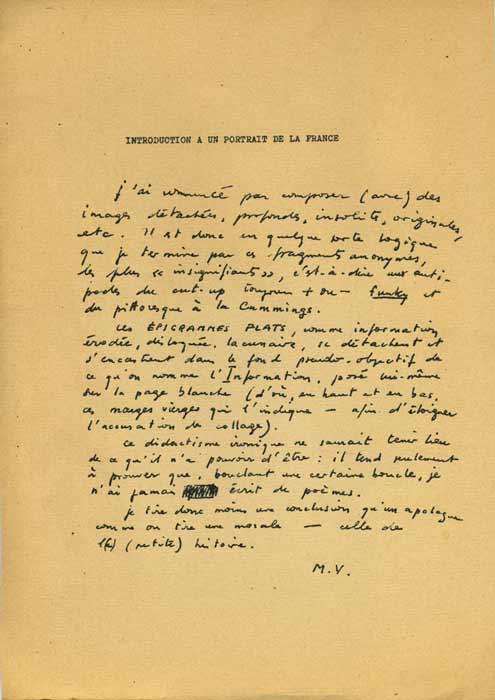 INTRODUCTION A UN PORTRAIT DE LA FRANCE
J'ai commencé par composer (avec) des
images détachées, profondes, insolites, originales,
etc. Il est donc en quelque sorte logique
que je termine par ces fragments anonymes,
des plus « insignifiants », c'est-à-dire aux anti-
podes du cut-up toujours + ou – funky et
du pittoresque à la Cummings.
Ces ÉPIGRAMMES PLATS, comme information
érodée, disloquée, lacunaire, se détachent et
s'encastrent dans le fond pseudo-objectif de
ce qu'on nomme l'Information, posé lui-même
sur la page blanche (d'où, en haut et en bas,
ces marges vierges qui l'indique — afin d'éloigner
l'accusation de collage).
Ce didactisme ironique ne saurait tenir lieu
de ce qu'il n'a pouvoir d'être : il tend seulement
à prouver que, bouclant une certaine boucle, je
n'ai jamais écrit de poèmes.
Je tire donc moins une conclusion qu'un apologue
comme on tire une morale — celle de
(petite) histoire.
M.V.